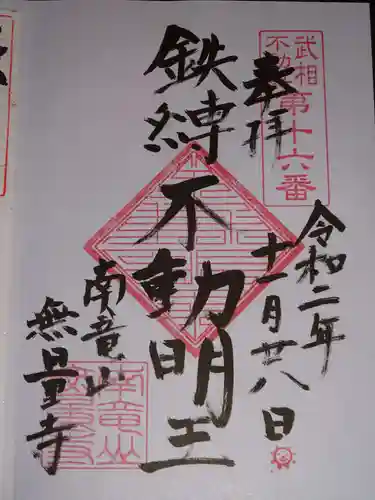 武相
不動
第十六番
奉拝
令和二年
十一月廿八日
鉄縛不動明王
南竜山
無量寺